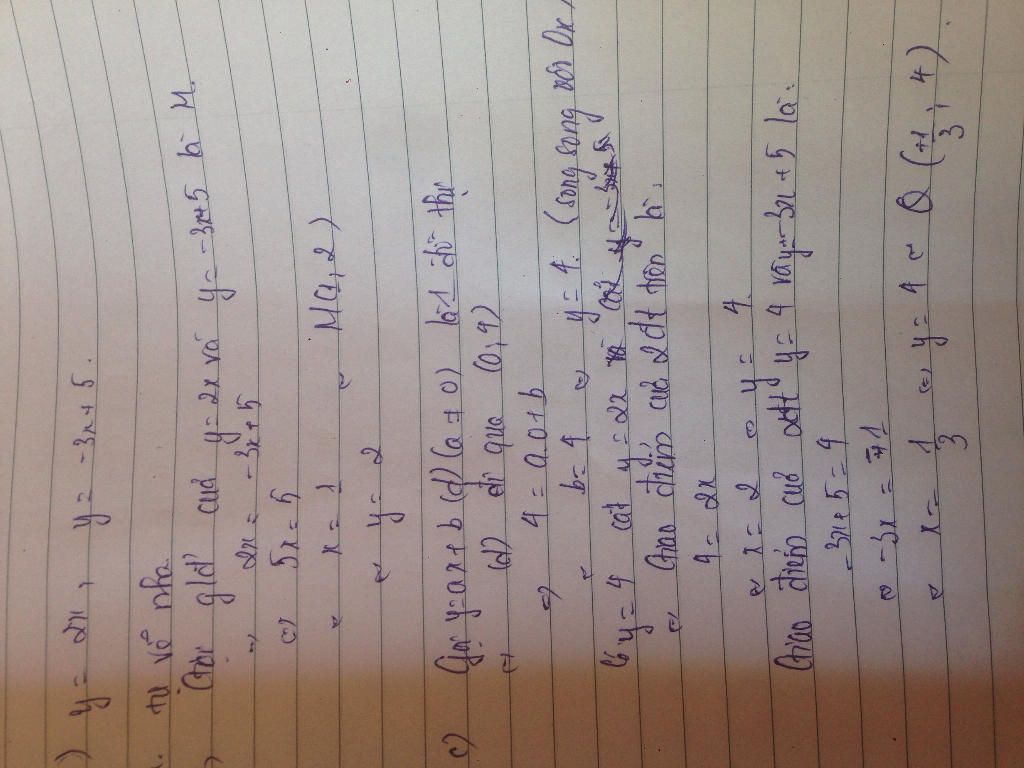 ) y = 2x , y = -3x + 5 .
tự vẽ nha.
) Gọi gđ của y = 2x và y = -3x+5 là M.
2x = -3x+5
⇔ 5x = 5
x = 1 M(1, 2)
y = 2
c) Gọi y = ax + b (d) (a ≠ 0) là 1 đồ thị
(d) đi qua (0, 4)
⇒ 4 = a.0 + b
b = 4 ⇔ y = 4. (song song với Ox
y = 4 cắt y = 2x
Giao điểm của 2 dt trên là.
4 = 2x
x = 2 ⇔ y = 4
Giao điểm của dt y = 4 và y = -3x + 5 là:
-3x + 5 = 4
⇔ -3x = -1
x = 1/3 ⇔ y = 4 Q (+1/3 , 4)